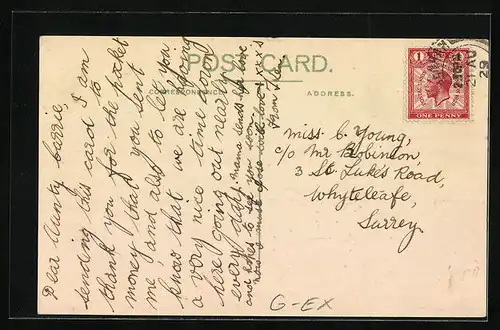 POST CARD.
CORRESPONDENCE.
ADDRESS.
Dear Aunty Carrie,
sending this card I am
thank you for the pocket
money that you sent
me, and also to let you
know that we are having
a very nice time down
here going out nearly
every day, mama sends her love
and hopes to see you soon
now I must close with love & xx's
from
Miss C. Young,
c/o Mr Robinson,
3 St Luke's Road,
Whyteleafe,
Surrey
1
ONE PENNY
21 AU
29
G-EX